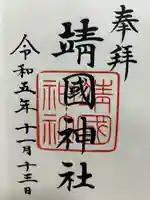 奉拝
靖國神社
令和五年十一月十三日
靖國
神社